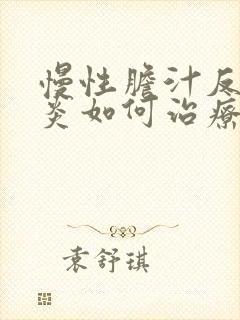 慢性膽汁反
炎如何治療
袁舒琪